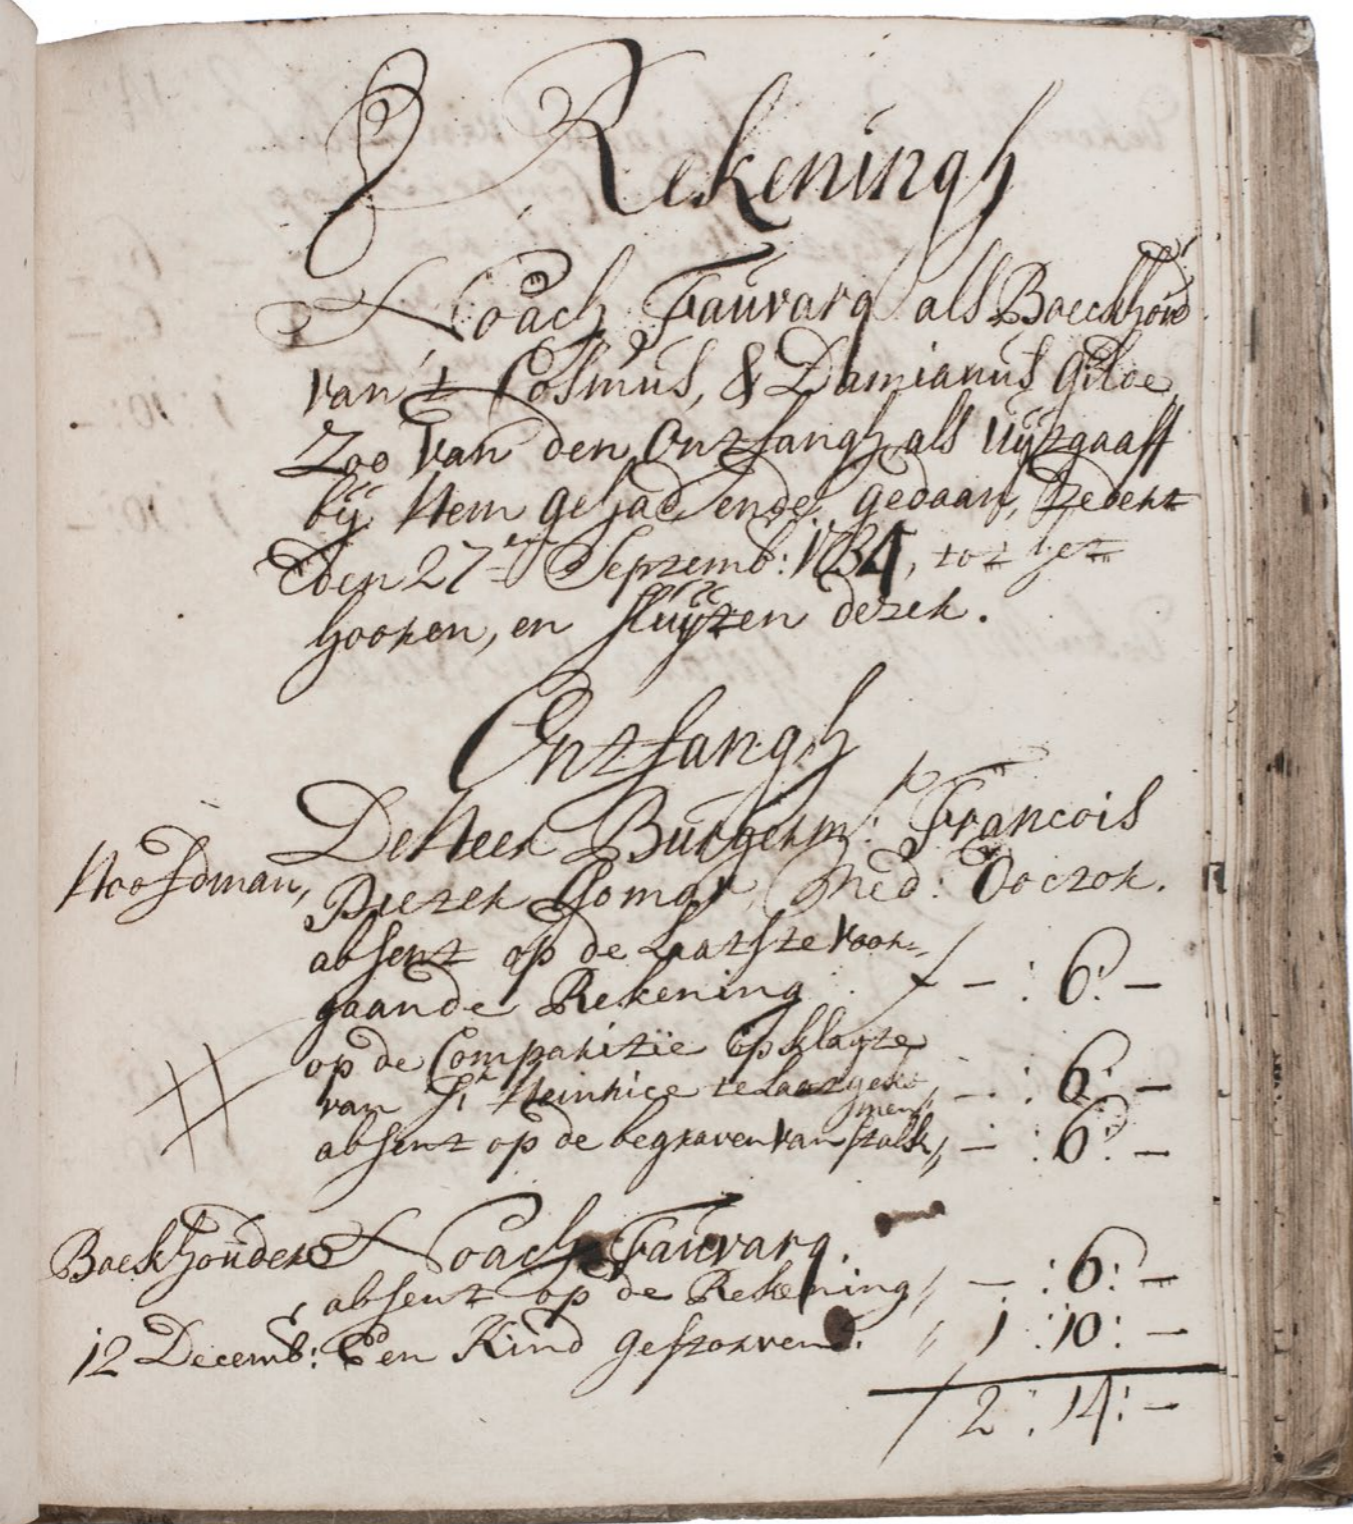 Rekeningh
Noach Fauvarq als Boeckhoud
van 't Cosmus, & Damianus Gilde
Zoo van den Ontfangh als Uijtgaaff
bij Hem gehad ende gedaan, zedert
den 27en Septemb: 1734, tot het
hooren, en sluijten dezer.
Ontfangh
De Heer Burgerm: Francois
Hoofdman, Pieter Gomar, Med: Doctor.
absent op de Laatste voor=
gaande Rekening - : 6: -
op de Comparitie op klagte
van Sr. Heinrice te Laat geko - : 6: -
men
absent op de begraven van stalk, - : 6: -
Boekhouder Noach Fauvarq.
absent op de Rekening, - : 6: -
12 Decemb: Een Kind gestorven: 1 : 10: -
2 : 14: -